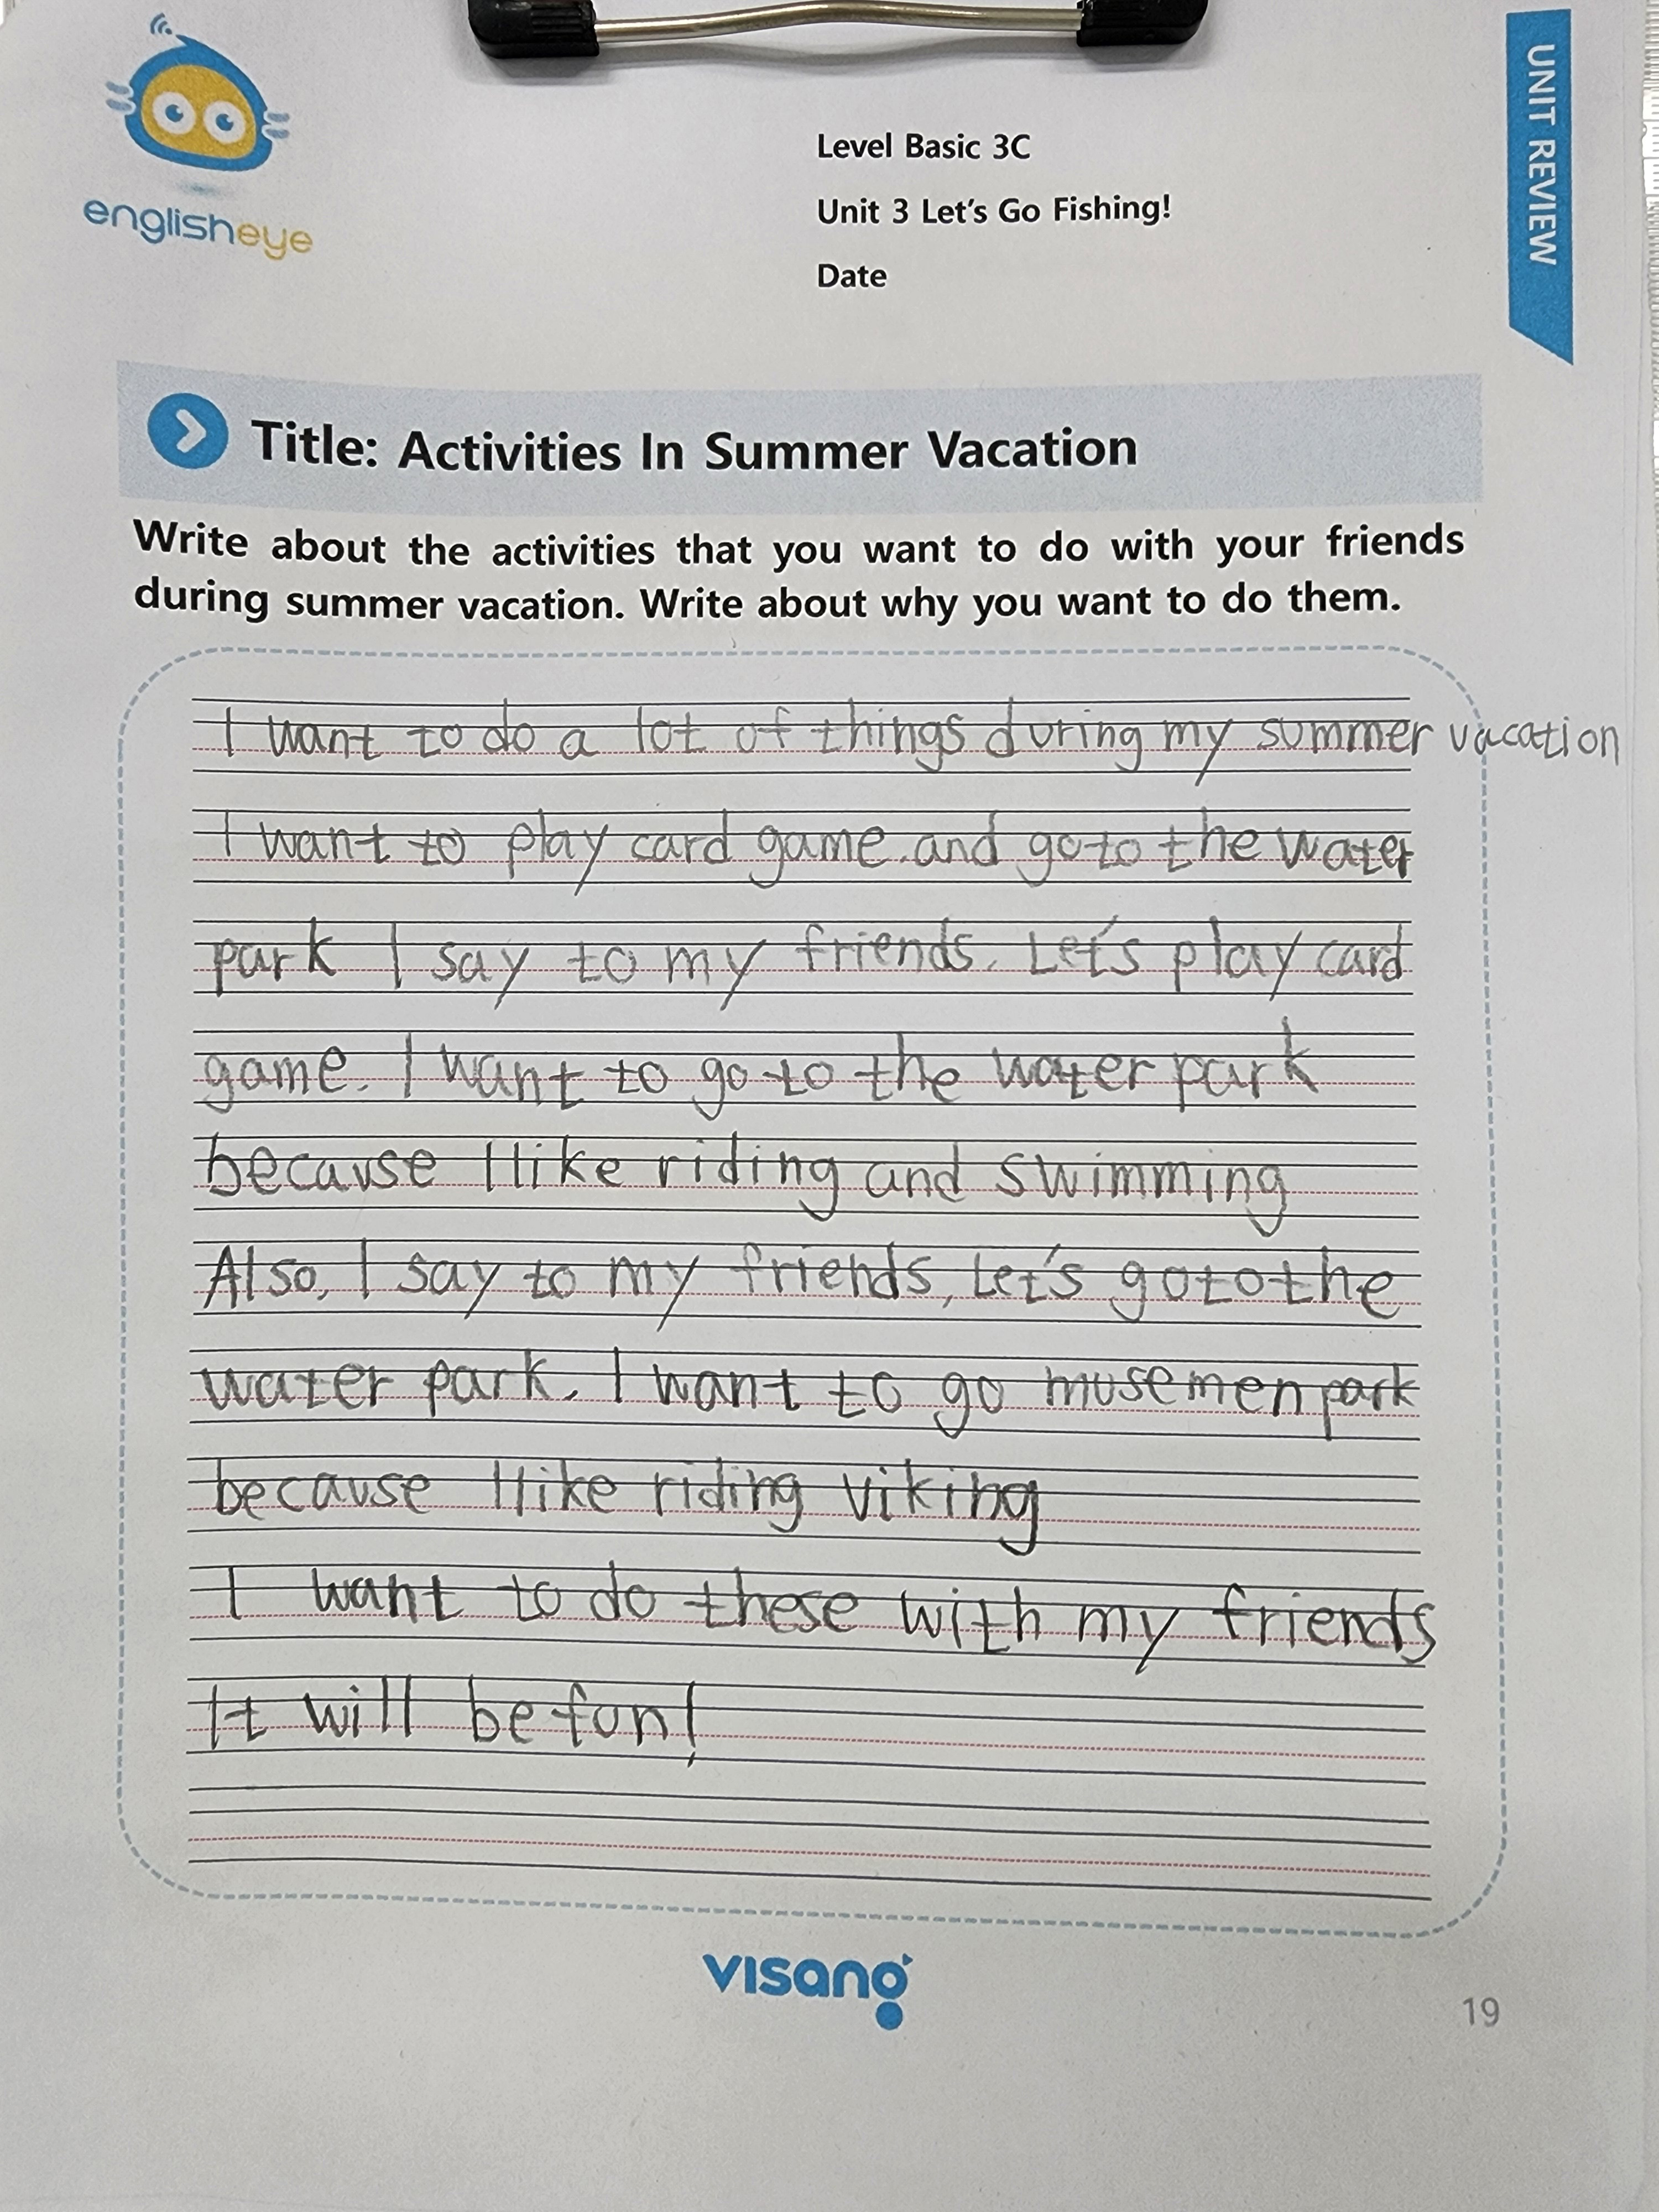 englisheye
Level Basic 3C
Unit 3 Let's Go Fishing!
Date
UNIT REVIEW
Title: Activities In Summer Vacation
Write about the activities that you want to do with your friends
during summer vacation. Write about why you want to do them.
I want to do a lot of things during my summer vacation
I want to play card game. and go to the water
park I say to my friends. Let's play card
game. I want to go to the water park
because I like riding and swimming
Also, I say to my friends, Let's go to the
water park. I want to go musemen park
because I like riding viking
I want to do these with my friends
It will be fun!
visang
19